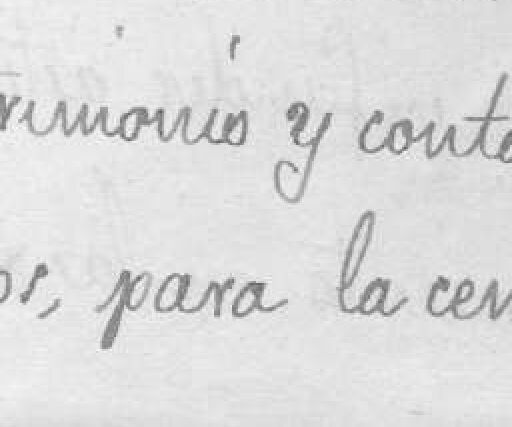 trimonio y conta
os, para la cen